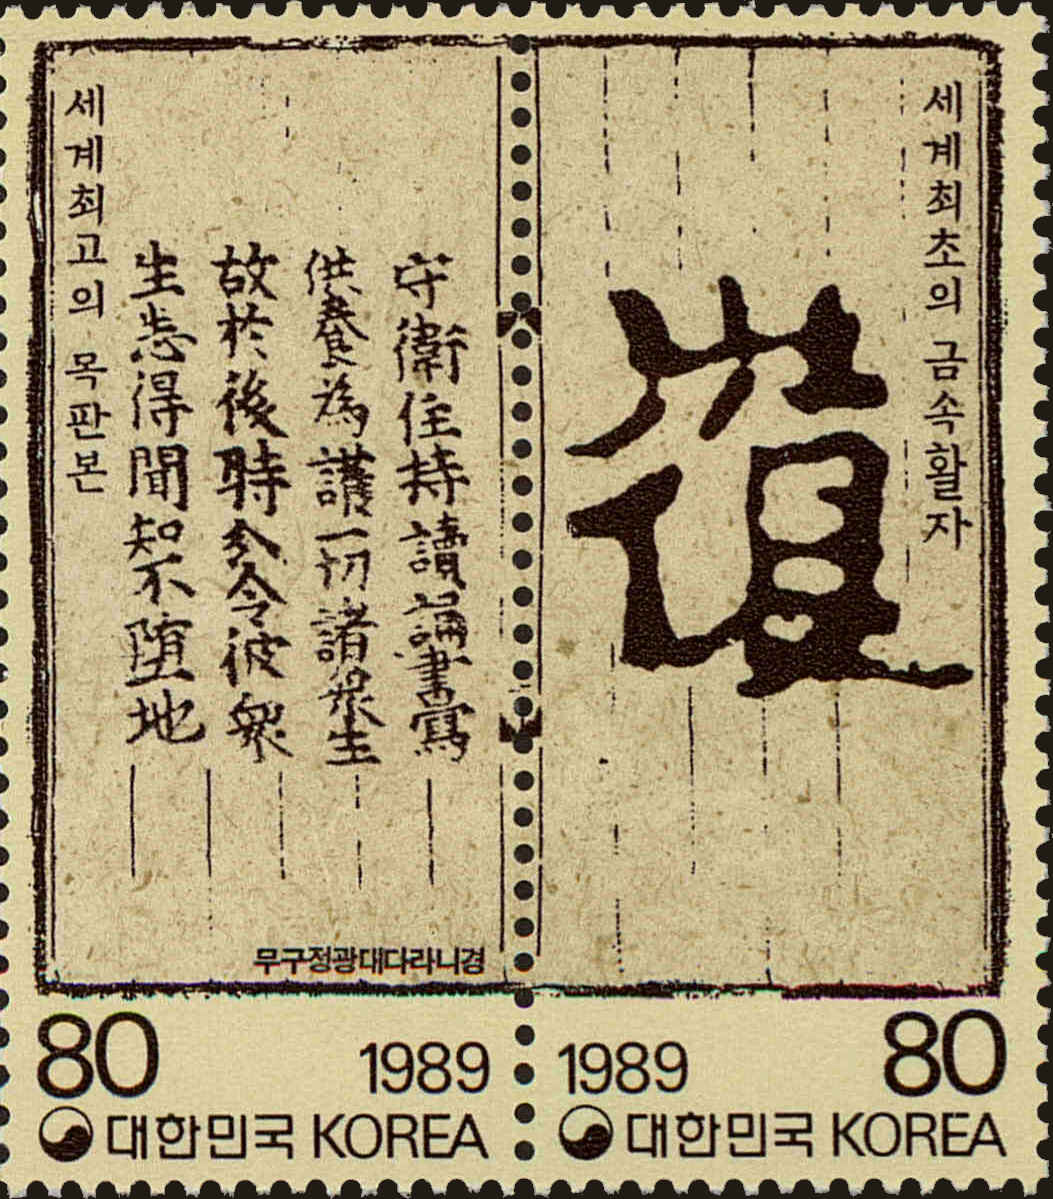 세계최고의 목판본
守衛住持讀誦書寫
供養為護一切諸衆生
故於後時分令彼衆
生悉得聞知不墮地
무구정광대다라니경
80 1989
대한민국 KOREA
세계최초의 금속활자
㠅
1989 80
대한민국 KOREA